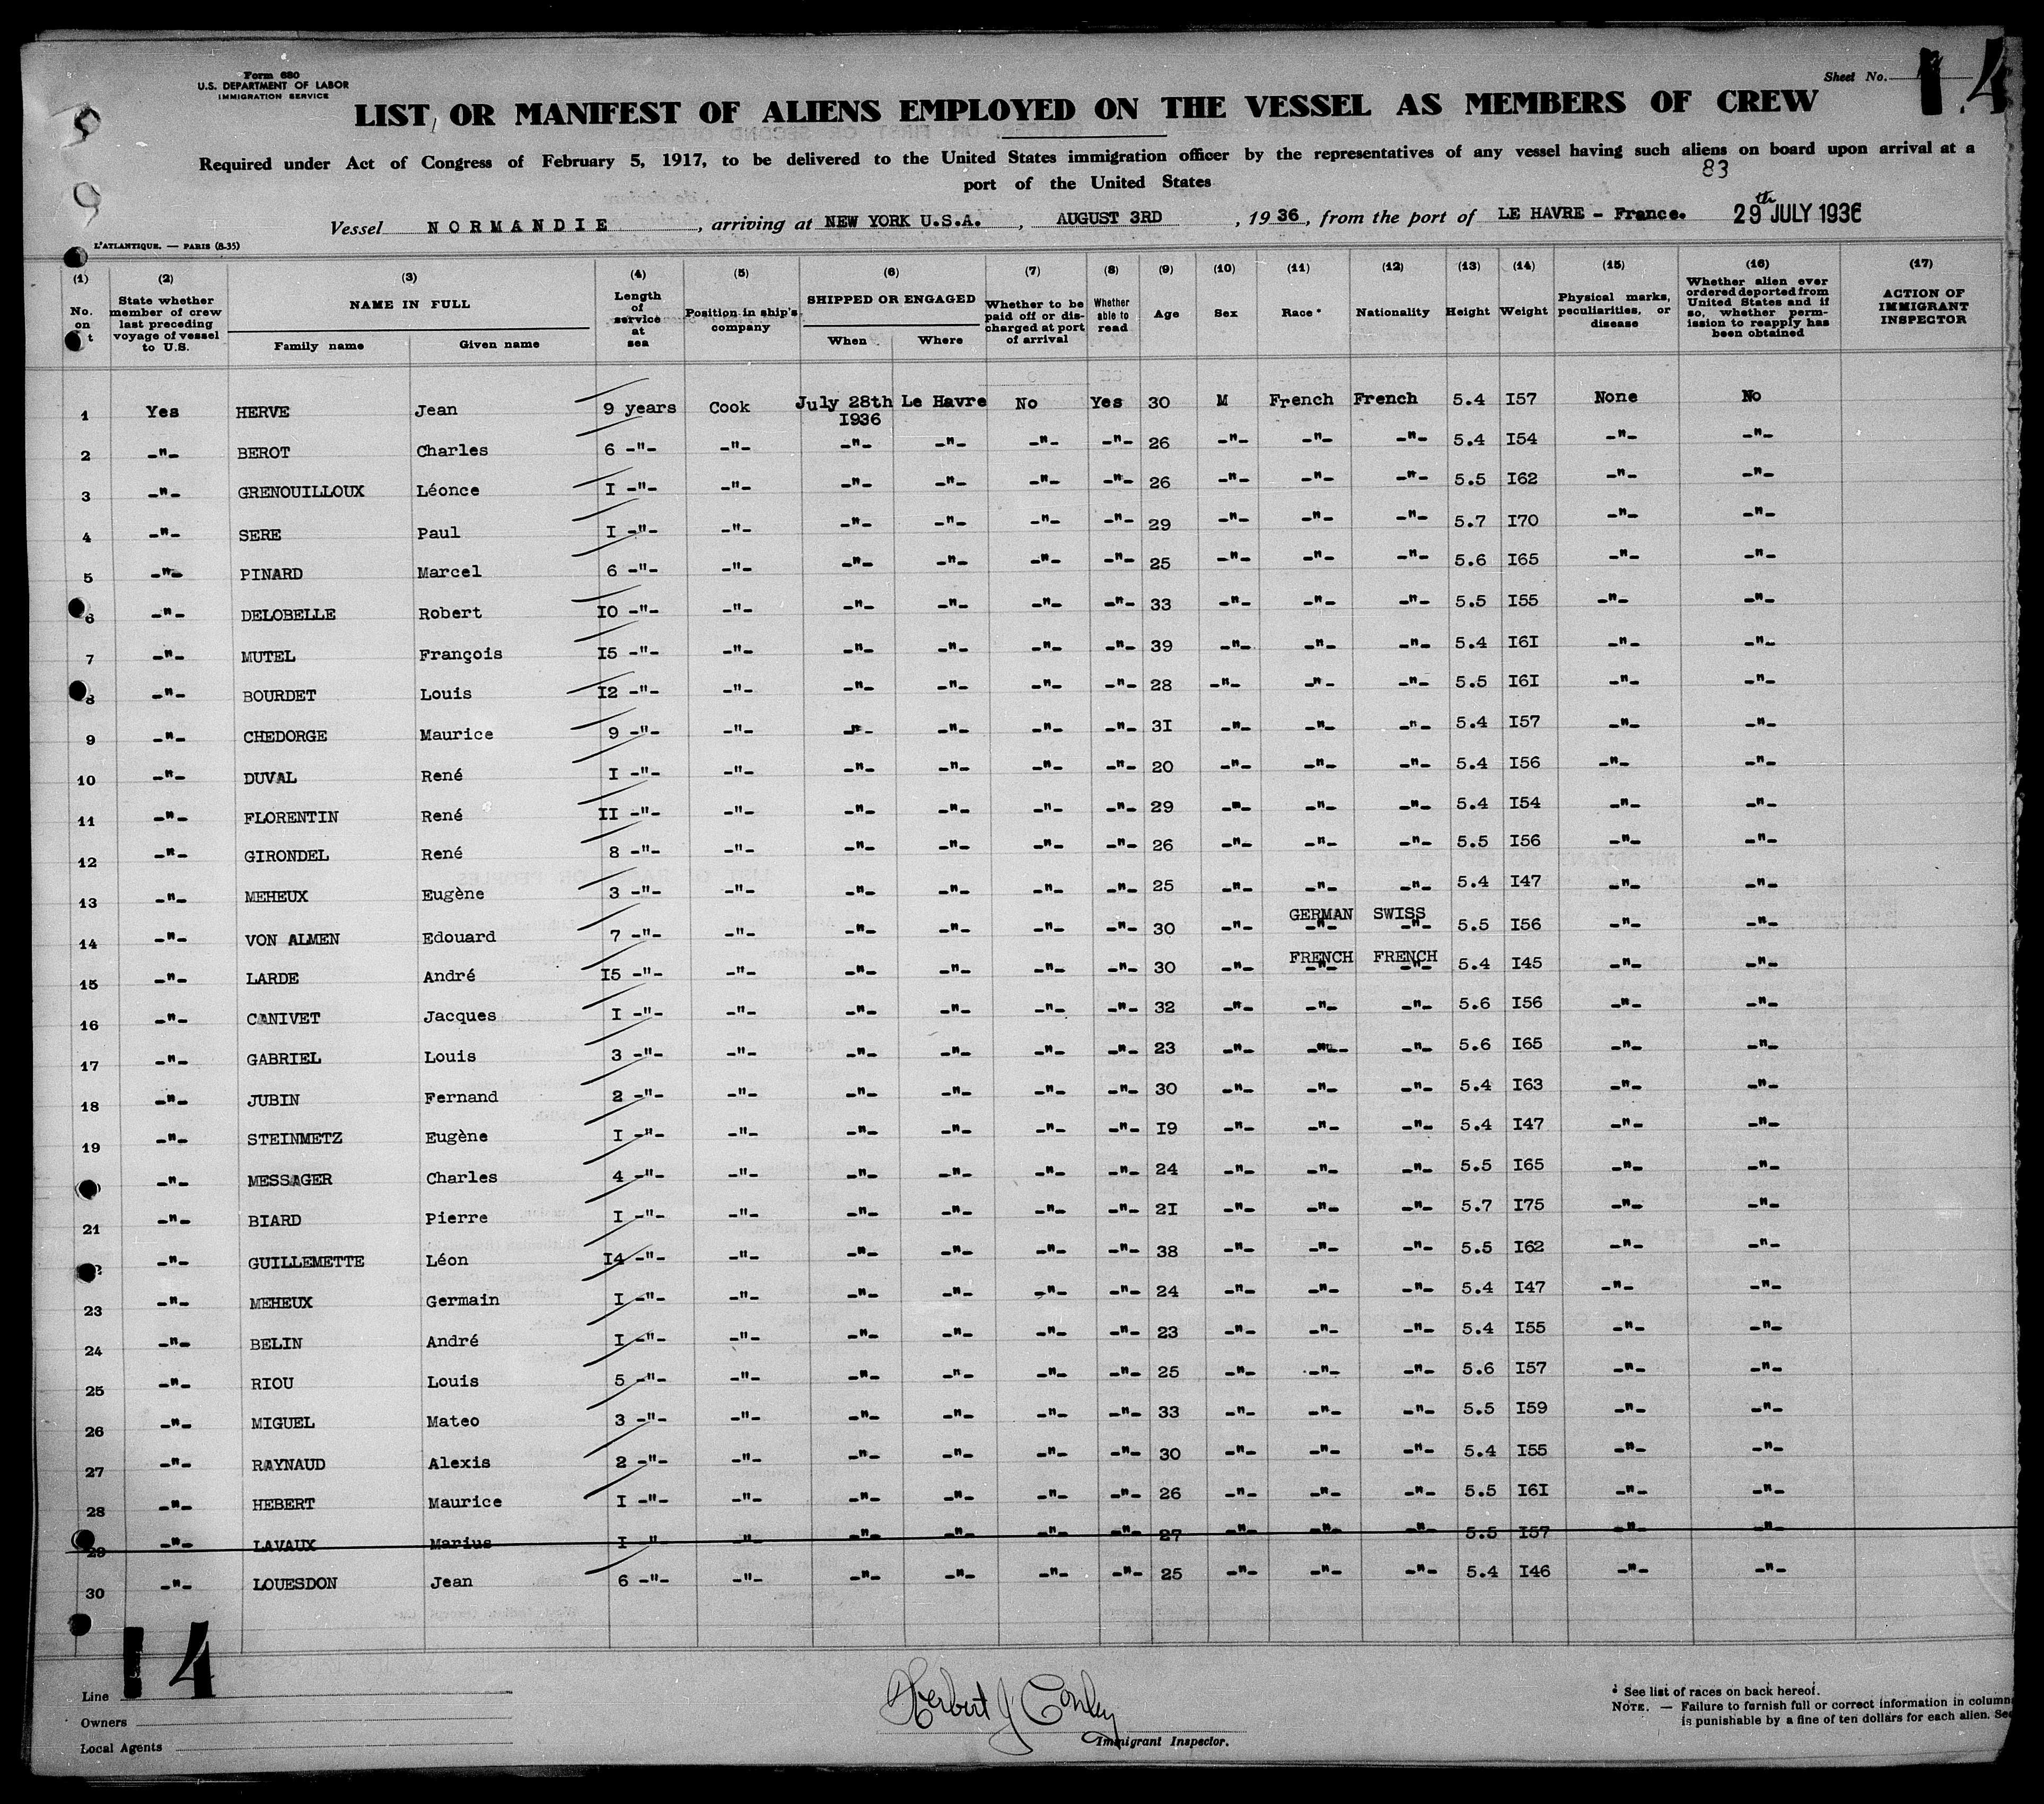 Form 680
U.S. DEPARTMENT OF LABOR
IMMIGRATION SERVICE
Sheet No. 14
LIST OR MANIFEST OF ALIENS EMPLOYED ON THE VESSEL AS MEMBERS OF CREW
Required under Act of Congress of February 5, 1917, to be delivered to the United States immigration officer by the representatives of any vessel having such aliens on board upon arrival at a
port of the United States
83
Vessel NORMANDIE, arriving at NEW YORK U.S.A., AUGUST 3RD, 1936, from the port of LE HAVRE - France. 29th JULY 1936
L'ATLANTIQUE. — PARIS (8-35)
(1) (2) (3) (4) (5) (6) (7) (8) (9) (10) (11) (12) (13) (14) (15) (16) (17)
No. on t
State whether member of crew last preceding voyage of vessel to U.S.
NAME IN FULL
Family name Given name
Length of service at sea
Position in ship's company
SHIPPED OR ENGAGED
When Where
Whether to be paid off or discharged at port of arrival
Whether able to read
Age Sex Race* Nationality Height Weight
Physical marks, peculiarities, or disease
Whether alien ever ordered deported from United States and if so, whether permission to reapply has been obtained
ACTION OF IMMIGRANT INSPECTOR
1 Yes HERVE Jean 9 years Cook July 28th I936 Le Havre No Yes 30 M French French 5.4 I57 None No
2 -"- BEROT Charles 6 -"- -"- -"- -"- -"- -"- 26 -"- -"- -"- 5.4 I54 -"- -"-
3 -"- GRENOUILLOUX Léonce I -"- -"- -"- -"- -"- -"- 26 -"- -"- -"- 5.5 I62 -"- -"-
4 -"- SERE Paul I -"- -"- -"- -"- -"- -"- 29 -"- -"- -"- 5.7 I70 -"- -"-
5 -"- PINARD Marcel 6 -"- -"- -"- -"- -"- -"- 25 -"- -"- -"- 5.6 I65 -"- -"-
6 -"- DELOBELLE Robert IO -"- -"- -"- -"- -"- -"- 33 -"- -"- -"- 5.5 I55 -"- -"-
7 -"- MUTEL François I5 -"- -"- -"- -"- -"- -"- 39 -"- -"- -"- 5.4 I6I -"- -"-
8 -"- BOURDET Louis I2 -"- -"- -"- -"- -"- -"- 28 -"- -"- -"- 5.5 I6I -"- -"-
9 -"- CHEDORGE Maurice 9 -"- -"- -"- -"- -"- -"- 3I -"- -"- -"- 5.4 I57 -"- -"-
10 -"- DUVAL René I -"- -"- -"- -"- -"- -"- 20 -"- -"- -"- 5.4 I56 -"- -"-
11 -"- FLORENTIN René II -"- -"- -"- -"- -"- -"- 29 -"- -"- -"- 5.4 I54 -"- -"-
12 -"- GIRONDEL René 8 -"- -"- -"- -"- -"- -"- 26 -"- -"- -"- 5.5 I56 -"- -"-
13 -"- MEHEUX Eugène 3 -"- -"- -"- -"- -"- -"- 25 -"- -"- -"- 5.4 I47 -"- -"-
14 -"- VON ALMEN Edouard 7 -"- -"- -"- -"- -"- -"- 30 -"- GERMAN -"- SWISS -"- 5.5 I56 -"- -"-
15 -"- LARDE André I5 -"- -"- -"- -"- -"- -"- 30 -"- FRENCH -"- FRENCH -"- 5.4 I45 -"- -"-
16 -"- CANIVET Jacques I -"- -"- -"- -"- -"- -"- 32 -"- -"- -"- 5.6 I56 -"- -"-
17 -"- GABRIEL Louis 3 -"- -"- -"- -"- -"- -"- 23 -"- -"- -"- 5.6 I65 -"- -"-
18 -"- JUBIN Fernand 2 -"- -"- -"- -"- -"- -"- 30 -"- -"- -"- 5.4 I63 -"- -"-
19 -"- STEINMETZ Eugène I -"- -"- -"- -"- -"- -"- I9 -"- -"- -"- 5.4 I47 -"- -"-
-"- MESSAGER Charles 4 -"- -"- -"- -"- -"- -"- 24 -"- -"- -"- 5.5 I65 -"- -"-
21 -"- BIARD Pierre I -"- -"- -"- -"- -"- -"- 2I -"- -"- -"- 5.7 I75 -"- -"-
-"- GUILLEMETTE Léon I4 -"- -"- -"- -"- -"- -"- 38 -"- -"- -"- 5.5 I62 -"- -"-
23 -"- MEHEUX Germain I -"- -"- -"- -"- -"- -"- 24 -"- -"- -"- 5.4 I47 -"- -"-
24 -"- BELIN André I -"- -"- -"- -"- -"- -"- 23 -"- -"- -"- 5.4 I55 -"- -"-
25 -"- RIOU Louis 5 -"- -"- -"- -"- -"- -"- 25 -"- -"- -"- 5.6 I57 -"- -"-
26 -"- MIGUEL Mateo 3 -"- -"- -"- -"- -"- -"- 33 -"- -"- -"- 5.5 I59 -"- -"-
27 -"- RAYNAUD Alexis 2 -"- -"- -"- -"- -"- -"- 30 -"- -"- -"- 5.4 I55 -"- -"-
28 -"- HEBERT Maurice I -"- -"- -"- -"- -"- -"- 26 -"- -"- -"- 5.5 I6I -"- -"-
29 -"- LAVAUX Marius I -"- -"- -"- -"- -"- -"- 27 -"- -"- -"- 5.5 I57 -"- -"-
30 -"- LOUESDON Jean 6 -"- -"- -"- -"- -"- -"- 25 -"- -"- -"- 5.4 I46 -"- -"-
14
Line
Owners
Local Agents
Herbert J Conley
Immigrant Inspector.
* See list of races on back hereof.
NOTE. — Failure to furnish full or correct information in column
is punishable by a fine of ten dollars for each alien. See